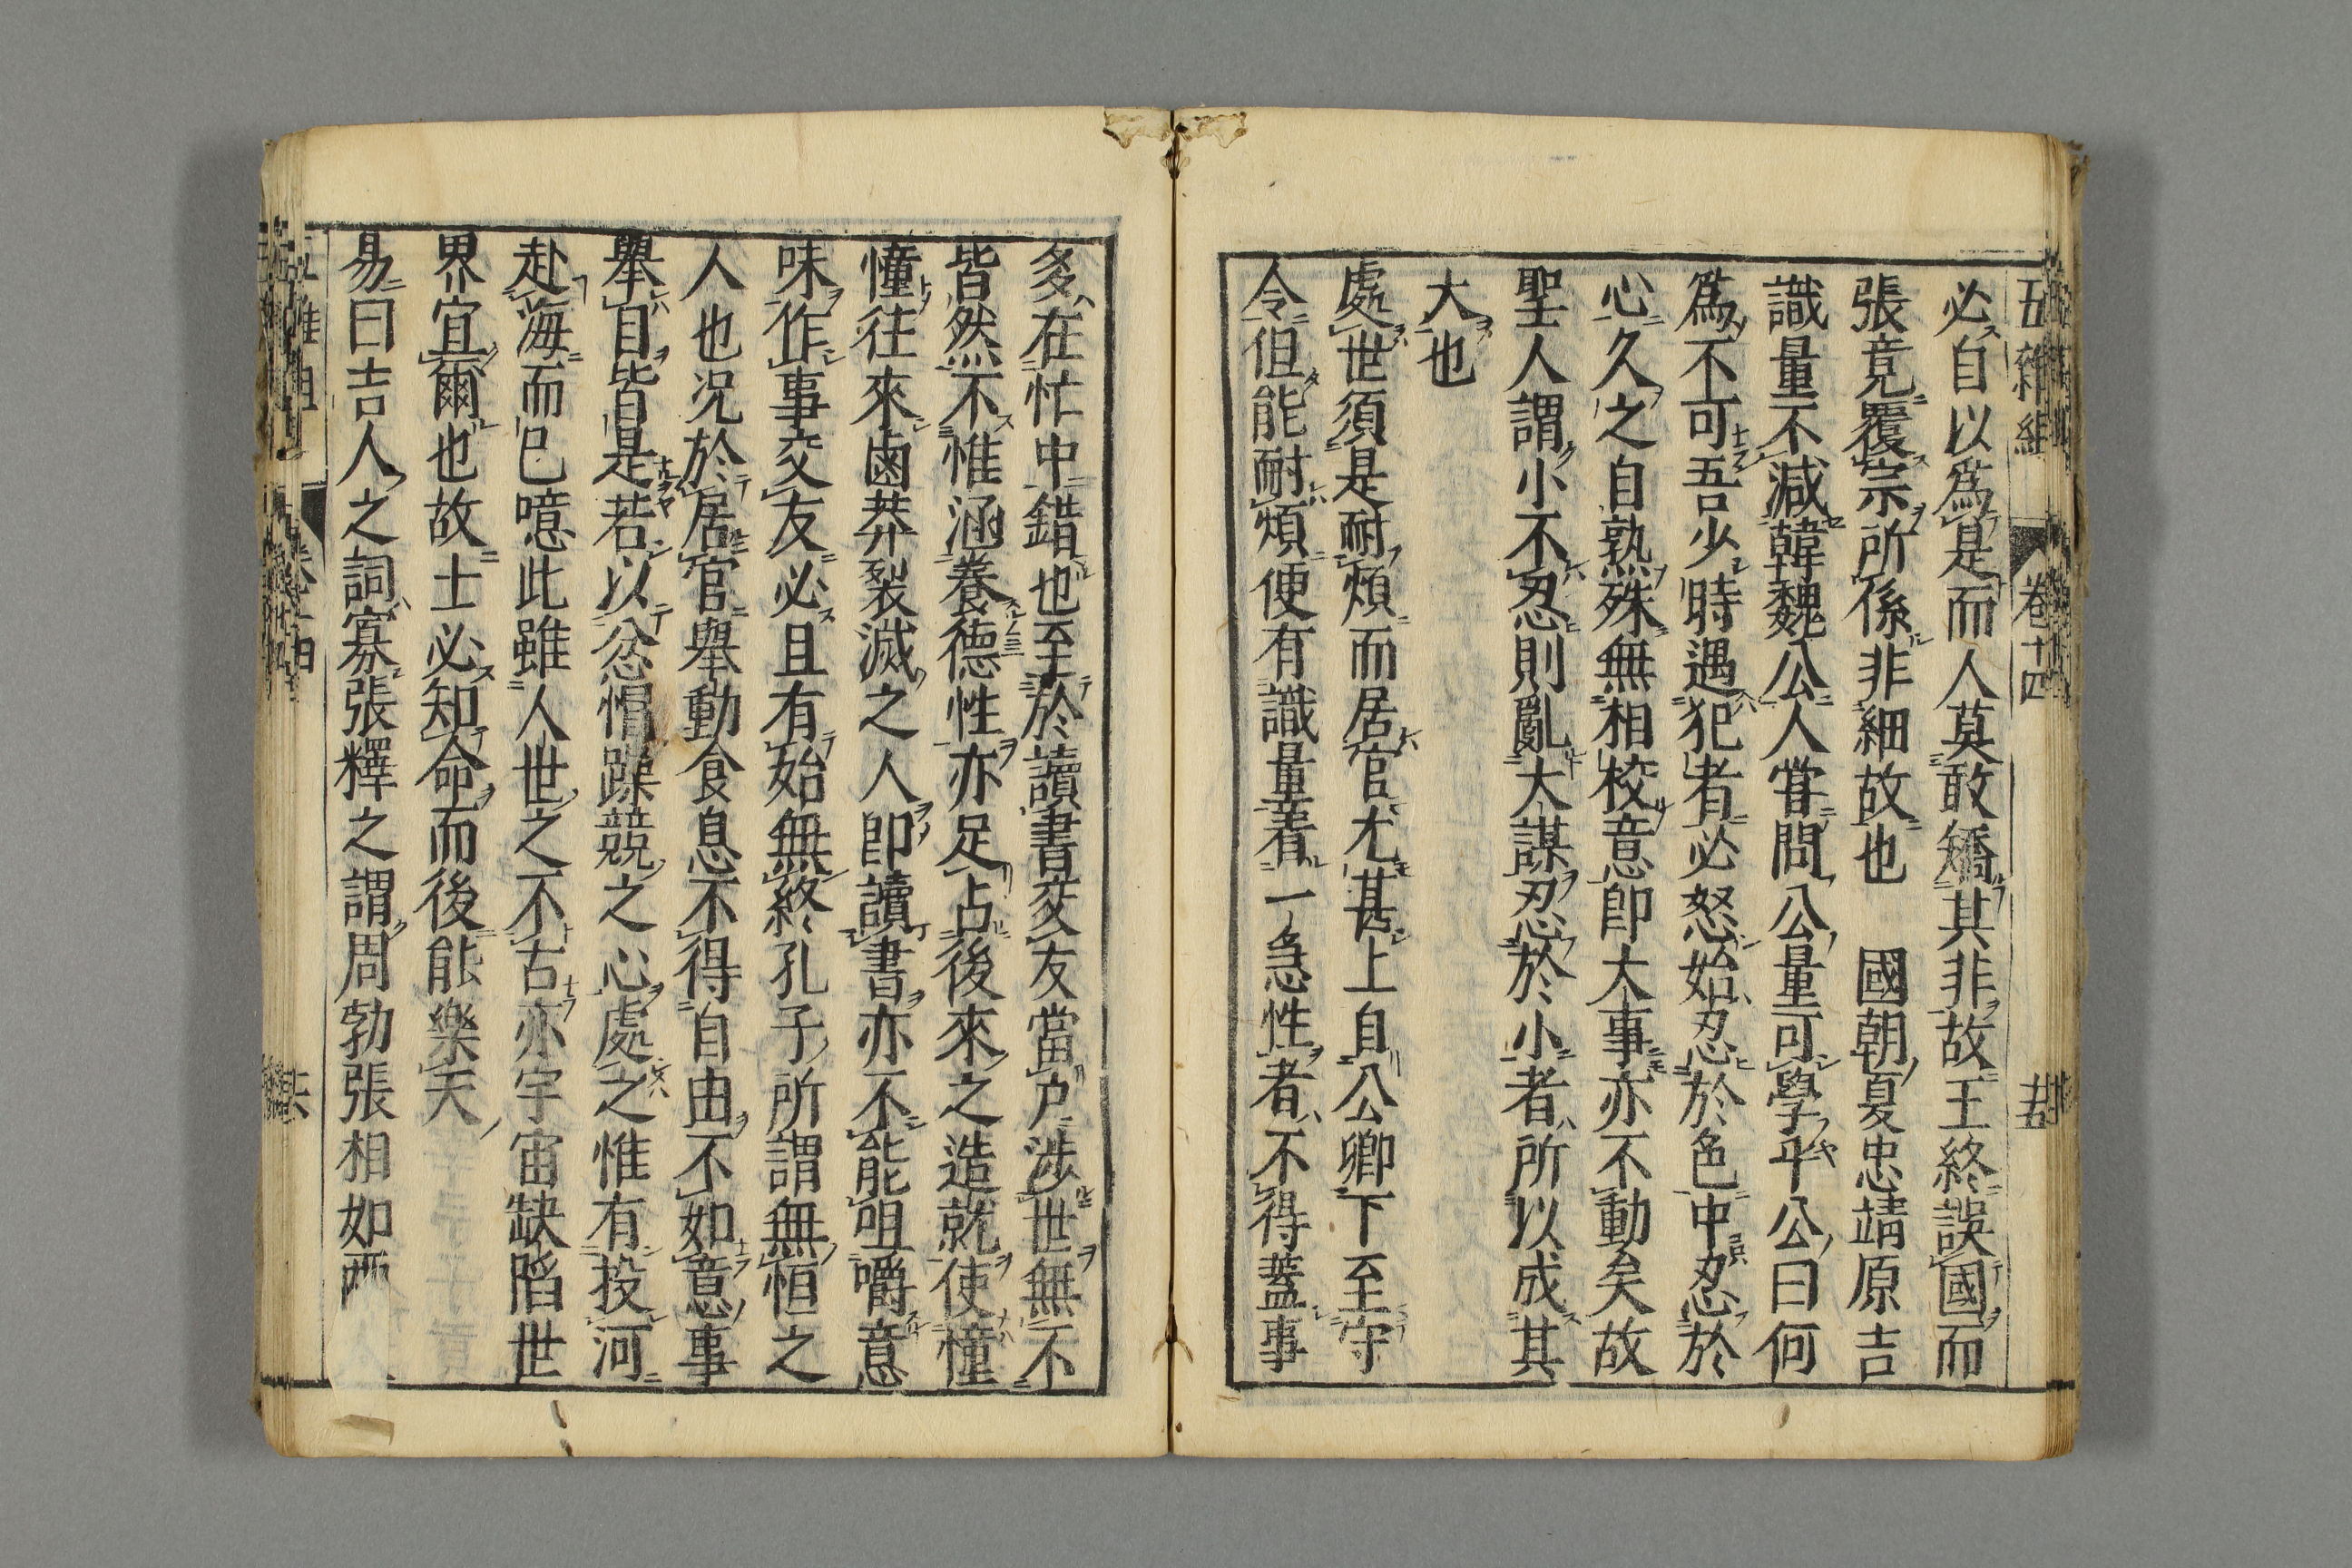 五雜組 卷十四 廿五
必自以爲是而人莫敢矯其非故王終誤國而
張竟覆宗所係非細故也 國朝夏忠靖原吉
識量不減韓魏公人嘗問公量可學乎公曰何
爲不可吾少時遇犯者必怒始忍於色中忍於
心久之自熟殊無相校意卽大事亦不動矣故
聖人謂小不忍則亂大謀忍於小者所以成其
大也
處世須是耐煩而居官尤甚上自公卿下至守
令但能耐煩便有識量著一急性者不得蓋事
多在忙中錯也至於讀書交友當戸涉世無不
皆然不惟涵養德性亦足占後來之造就使憧
憧往來鹵莽裂滅之人卽讀書亦不能咀嚼意
味作事交友必且有始無終孔子所謂無恒之
人也况於居官舉動食息不得自由不如意事
舉目皆是若以忿悁躁競之心處之惟有投河
赴海而已噫此雖人世之不古亦宇宙缺陷世
界宜爾也故士必知命而後能樂天
易曰吉人之詞寡張釋之謂周勃張相如兩